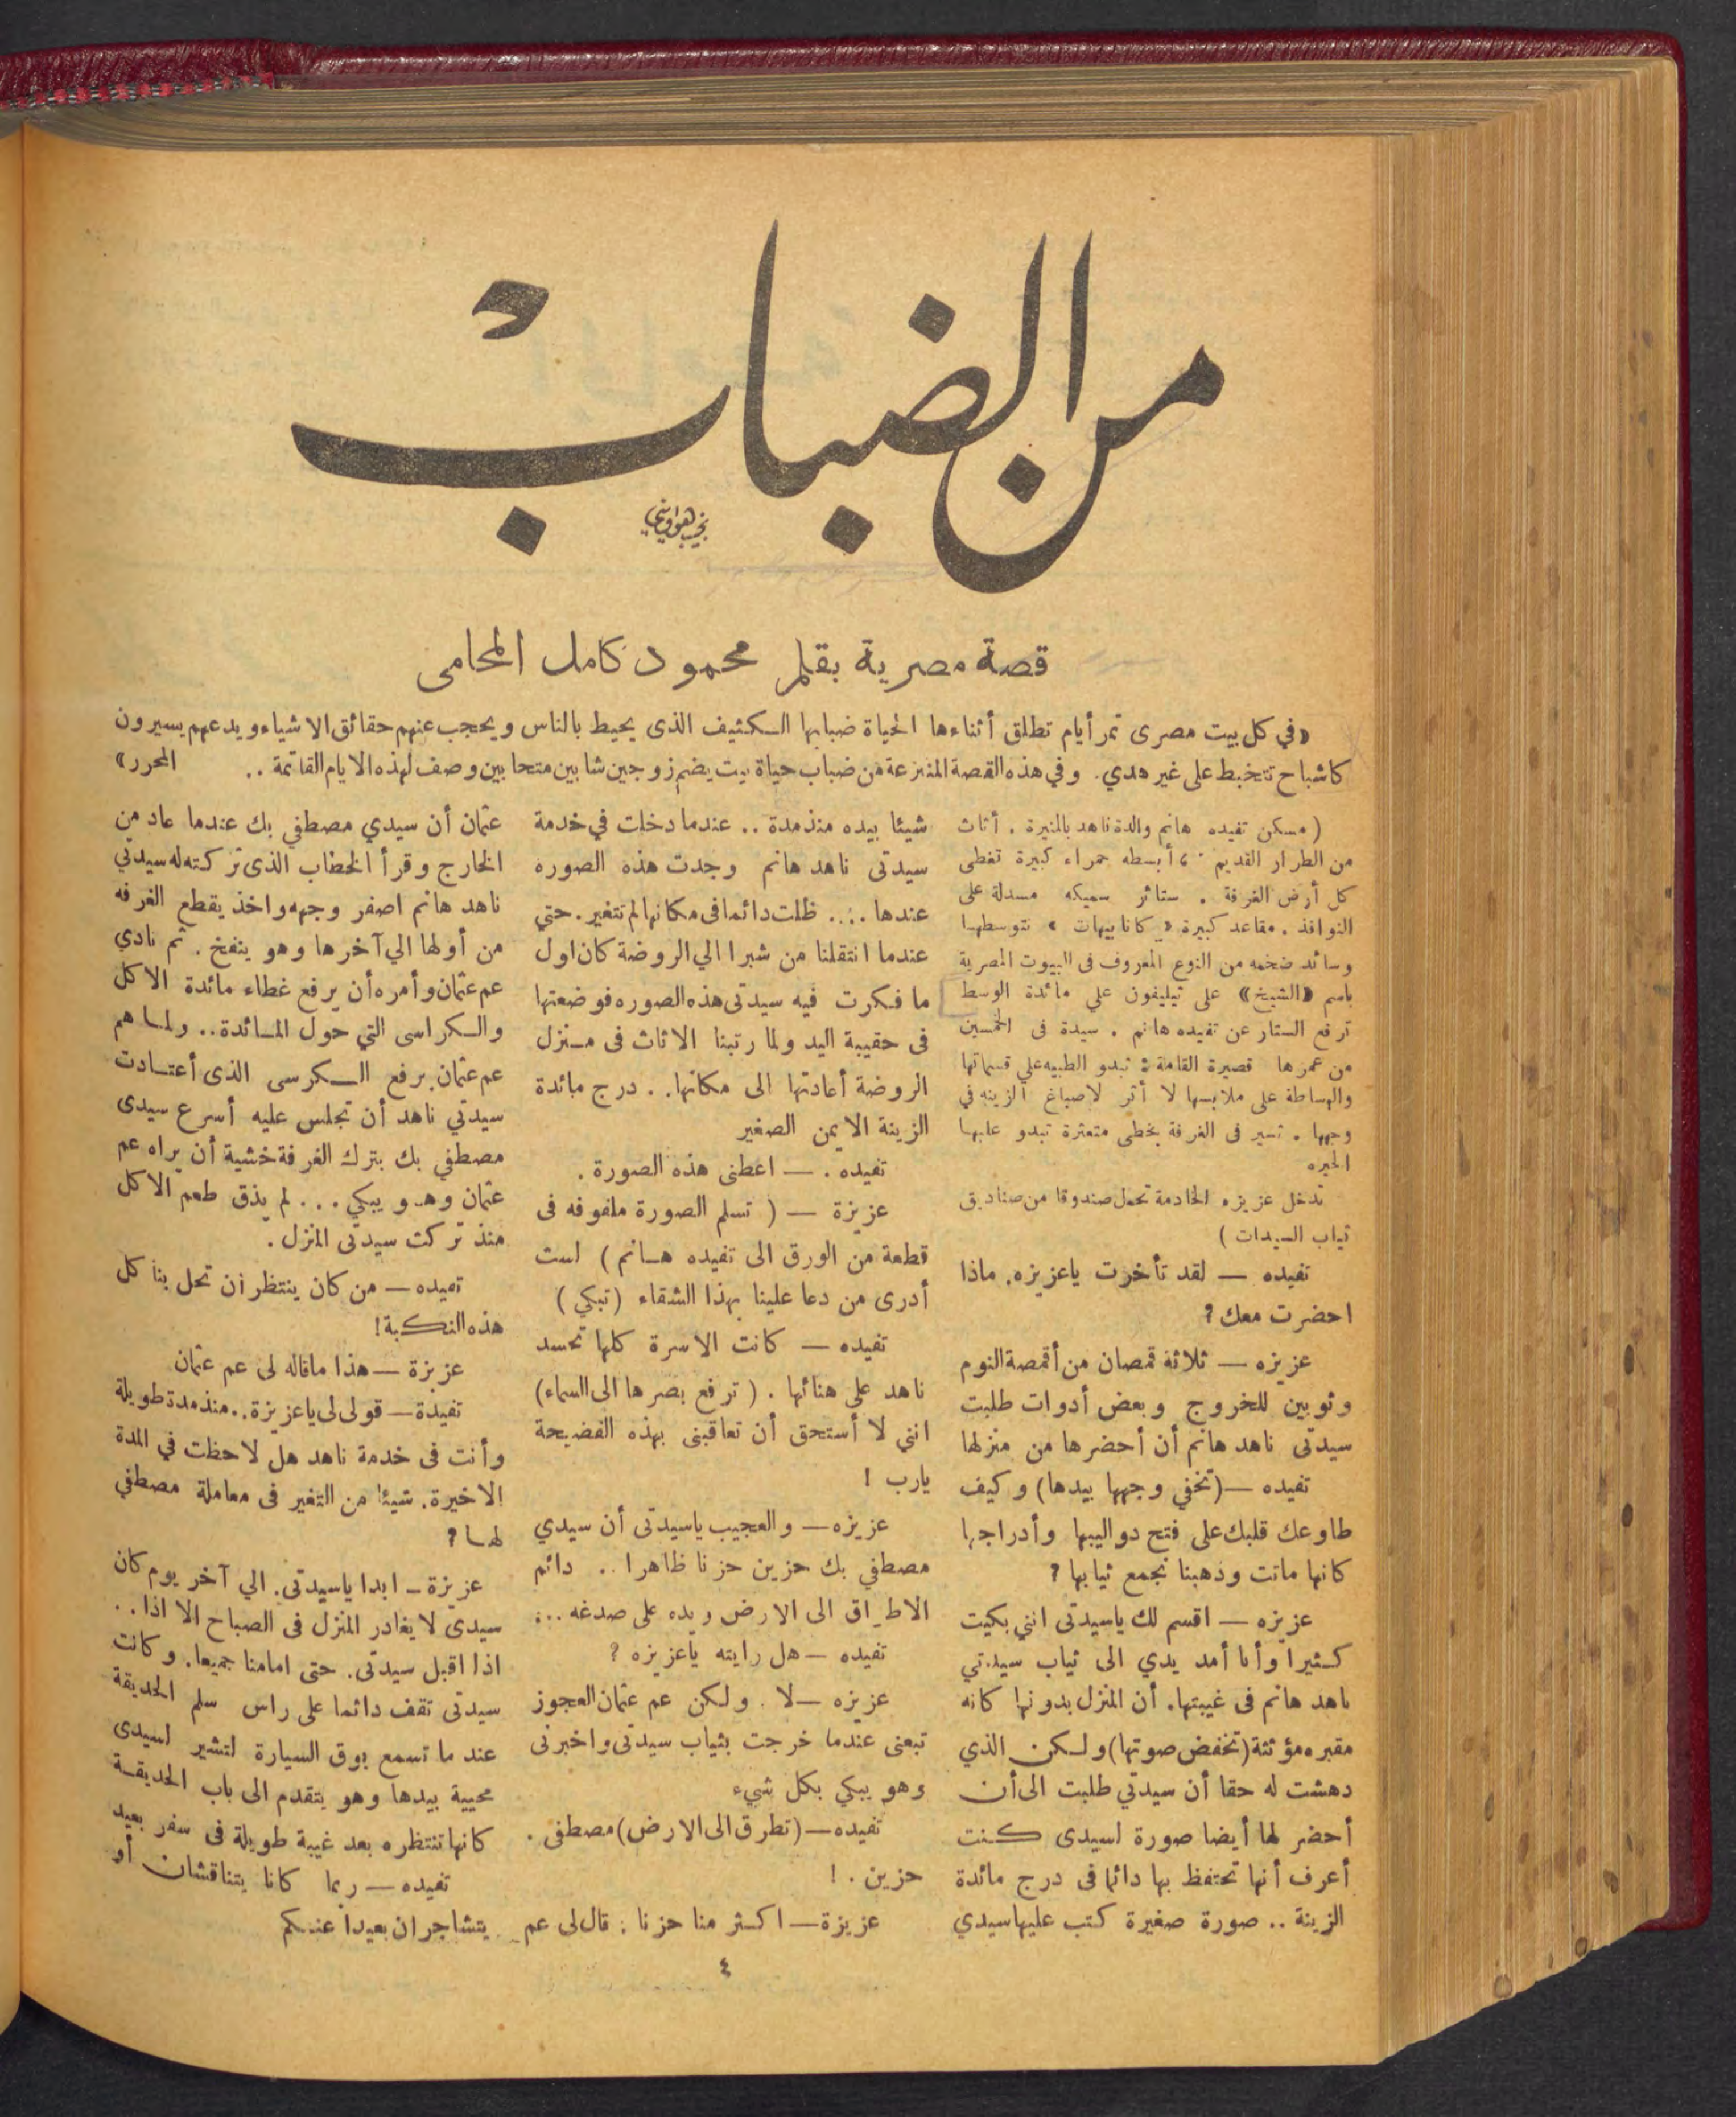 من الضباب
نجيب هواويني
قصة مصرية بقلم محمود كامل المحامى
«في كل بيت مصرى تمر أيام تطلق أثناءها الحياة ضبابها الكثيف الذى يحيط بالناس ويحجب عنهم حقائق الاشياء ويدعهم يسيرون
كاشباح تتخبط على غير هدي. وفي هذه القصة المنتزعة من ضباب حياة بيت يضم زوجين شابين متحابين وصف لهذه الايام القاتمة .. المحرر»
( مسكن تفيده هانم والدة ناهد بالمنيرة . أثاث
من الطرار القديم . أبسطه حمراء كبيرة تغطى
كل أرض الغرفة . ستائر سميكه مسدلة على
النوافذ . مقاعد كبيرة « كانابيهات » تتوسطها
وسائد ضخمه من النوع المعروف فى البيوت المصرية
باسم «الشيخ» على تيليفون علي مائدة الوسط
ترفع الستار عن تفيده هانم . سيدة فى الخمسين
من عمرها قصيرة القامة : تبدو الطيبه علي قسماتها
والبساطة على ملابسها لا أثر لاصباغ الزينه في
وجهها . تسير فى الغرفة بخطى متعثرة تبدو عليها
الحيره
تدخل عزيزه الخادمة تحمل صندوقا من صناديق
ثياب السيدات )
تفيده — لقد تأخرت ياعزيزه. ماذا
احضرت معك ?
عزيزه — ثلاثة قمصان من أقمصة النوم
وثوبين للخروج وبعض أدوات طلبت
سيدتى ناهد هانم أن أحضرها من منزلها
تفيده —(تخفي وجهها بيدها) وكيف
طاوعك قلبك على فتح دواليبها وأدراجها
كانها ماتت وذهبنا نجمع ثيابها ?
عزيزه — اقسم لك ياسيدتى انني بكيت
كثيرا وأنا أمد يدي الى ثياب سيدتي
ناهد هانم فى غيبتها. أن المنزل بدونها كانه
مقبره مؤثثة (تخفض صوتها) ولكن الذي
دهشت له حقا أن سيدتي طلبت الى أن
أحضر لها أيضا صورة لسيدى كنت
أعرف أنها تحتفظ بها دائما فى درج مائدة
الزينة .. صورة صغيرة كتب عليها سيدي
شيئا بيده منذ مدة .. عندما دخلت في خدمة
سيدتى ناهد هانم وجدت هذه الصوره
عندها .... ظلت دائما فى مكانها لم تتغير. حتي
عندما انتقلنا من شبرا الي الروضة كان اول
ما فكرت فيه سيدتى هذه الصوره فوضعتها
فى حقيبة اليد ولما رتبنا الاثاث فى منزل
الروضة أعادتها الى مكانها.. درج مائدة
الزينة الايمن الصغير
تفيده . — اعطنى هذه الصورة .
عزيزة — ( تسلم الصورة ملفوفه فى
قطعة من الورق الى تفيده هانم ) لست
أدرى من دعا علينا بهذا الشقاء (تبكي )
تفيده — كانت الاسرة كلها تحسد
ناهد على هنائها . ( ترفع بصرها الى السماء)
انني لا أستحق أن تعاقبنى بهذه الفضيحة
يارب !
عزيزه — والعجيب ياسيدتى أن سيدي
مصطفي بك حزين حزنا ظاهرا .. دائم
الاطراق الى الارض ويده على صدغه ...
تفيده — هل رايته ياعزيزه ?
عزيزه — لا . ولكن عم عثمان العجوز
تبعنى عندما خرجت بثياب سيدتى واخبرنى
وهو يبكي بكل شيء
تفيده — (تطرق الى الارض) مصطفى .
حزين . !
عزيزة — اكثر منا حزنا : قال لى عم
عثمان أن سيدي مصطفي بك عندما عاد من
الخارج وقرأ الخطاب الذى تركته له سيدتي
ناهد هانم اصفر وجهه واخذ يقطع الغرفه
من أولها الي آخرها وهو ينفخ . ثم نادي
عم عثمان وأمره أن يرفع غطاء مائدة الاكل
والكراسى التي حول المائدة .. ولما هم
عم عثمان برفع الكرسى الذى أعتادت
سيدتي ناهد أن تجلس عليه أسرع سيدى
مصطفي بك بترك الغرفة خشية أن يراه عم
عثمان وهو يبكي ... لم يذق طعم الاكل
منذ تركت سيدتى المنزل .
تفيده — من كان ينتظر ان تحل بنا كل
هذه النكبة!
عزيزة — هذا ماقاله لى عم عثمان
تفيدة — قولى لى ياعزيزة.. منذ مدة طويلة
وأنت فى خدمة ناهد هل لاحظت في المدة
الاخيرة. شيئا من التغير فى معاملة مصطفي
لها ?
عزيزة — ابدا ياسيدتى. الي آخر يوم كان
سيدى لا يغادر المنزل فى الصباح الا اذا ..
اذا اقبل سيدتى. حتى امامنا جميعا. وكانت
سيدتى تقف دائما على راس سلم الحديقة
عند ما تسمع بوق السيارة لتشير لسيدى
محيية بيدها وهو يتقدم الى باب الحديقة
كانها تنتظره بعد غيبة طويلة فى سفر بعيد
تفيده — ربما كانا يتناقشان أو
يتشاجران بعيداً عنكم
٤